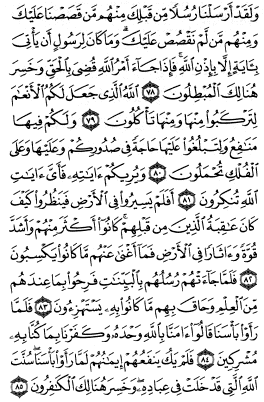 وَلَقَدْ أَرْسَلْنَا رُسُلًا مِّن قَبْلِكَ مِنْهُم مَّن قَصَصْنَا عَلَيْكَ
وَمِنْهُم مَّن لَّمْ نَقْصُصْ عَلَيْكَ ۗ وَمَا كَانَ لِرَسُولٍ أَن يَأْتِىَ
بِـَٔايَةٍ إِلَّا بِإِذْنِ ٱللَّهِ ۚ فَإِذَا جَآءَ أَمْرُ ٱللَّهِ قُضِىَ بِٱلْحَقِّ وَخَسِرَ
هُنَالِكَ ٱلْمُبْطِلُونَ ٧٨ ٱللَّهُ ٱلَّذِى جَعَلَ لَكُمُ ٱلْأَنْعَٰمَ
لِتَرْكَبُوا۟ مِنْهَا وَمِنْهَا تَأْكُلُونَ ٧٩ وَلَكُمْ فِيهَا
مَنَٰفِعُ وَلِتَبْلُغُوا۟ عَلَيْهَا حَاجَةً فِى صُدُورِكُمْ وَعَلَيْهَا وَعَلَى
ٱلْفُلْكِ تُحْمَلُونَ ٨٠ وَيُرِيكُمْ ءَايَٰتِهِۦ فَأَىَّ ءَايَٰتِ
ٱللَّهِ تُنكِرُونَ ٨١ أَفَلَمْ يَسِيرُوا۟ فِى ٱلْأَرْضِ فَيَنظُرُوا۟ كَيْفَ
كَانَ عَٰقِبَةُ ٱلَّذِينَ مِن قَبْلِهِمْ ۚ كَانُوٓا۟ أَكْثَرَ مِنْهُمْ وَأَشَدَّ
قُوَّةً وَءَاثَارًا فِى ٱلْأَرْضِ فَمَآ أَغْنَىٰ عَنْهُم مَّا كَانُوا۟ يَكْسِبُونَ
٨٢ فَلَمَّا جَآءَتْهُمْ رُسُلُهُم بِٱلْبَيِّنَٰتِ فَرِحُوا۟ بِمَا عِندَهُم
مِّنَ ٱلْعِلْمِ وَحَاقَ بِهِم مَّا كَانُوا۟ بِهِۦ يَسْتَهْزِءُونَ ٨٣ فَلَمَّا
رَأَوْا۟ بَأْسَنَا قَالُوٓا۟ ءَامَنَّا بِٱللَّهِ وَحْدَهُۥ وَكَفَرْنَا بِمَا كُنَّا بِهِۦ
مُشْرِكِينَ ٨٤ فَلَمْ يَكُ يَنفَعُهُمْ إِيمَٰنُهُمْ لَمَّا رَأَوْا۟ بَأْسَنَا ۖ سُنَّتَ
ٱللَّهِ ٱلَّتِى قَدْ خَلَتْ فِى عِبَادِهِۦ ۖ وَخَسِرَ هُنَالِكَ ٱلْكَٰفِرُونَ ٨٥